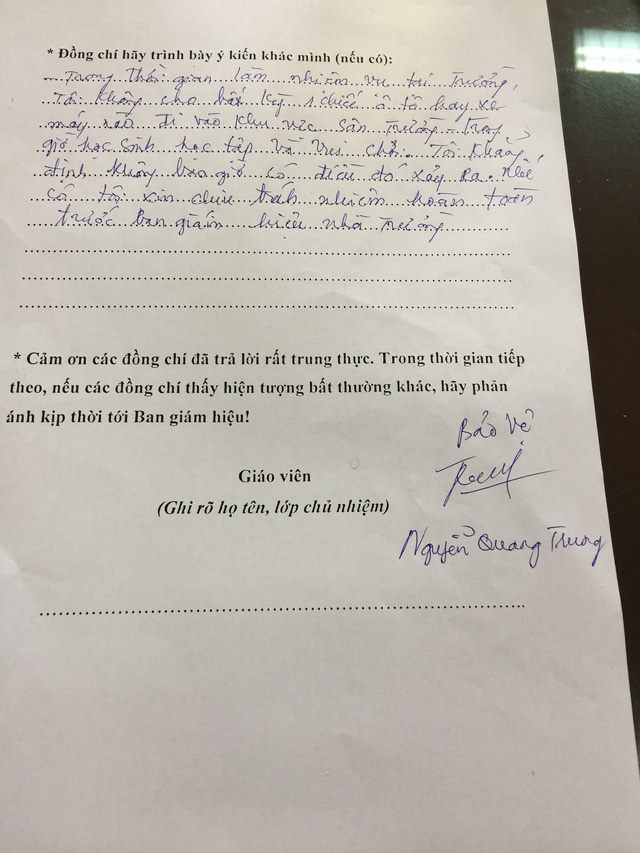 * Đồng chí hãy trình bày ý kiến khác mình (nếu có):
Trong thời gian làm nhiệm vụ tại trường,
Tôi không cho bất kỳ 1 chiếc ô tô hay xe
máy nào đi vào khu vực sân trường trong
giờ học sinh học tập và vui chơi. Tôi khẳng
định không bao giờ có điều đó xảy ra. Nếu
có tôi xin chịu trách nhiệm hoàn toàn
trước Ban giám hiệu nhà trường
* Cảm ơn các đồng chí đã trả lời rất trung thực. Trong thời gian tiếp
theo, nếu các đồng chí thấy hiện tượng bất thường khác, hãy phản
ánh kịp thời tới Ban giám hiệu!
Bảo vệ
Giáo viên
(Ghi rõ họ tên, lớp chủ nhiệm)
Nguyễn Quang Trung